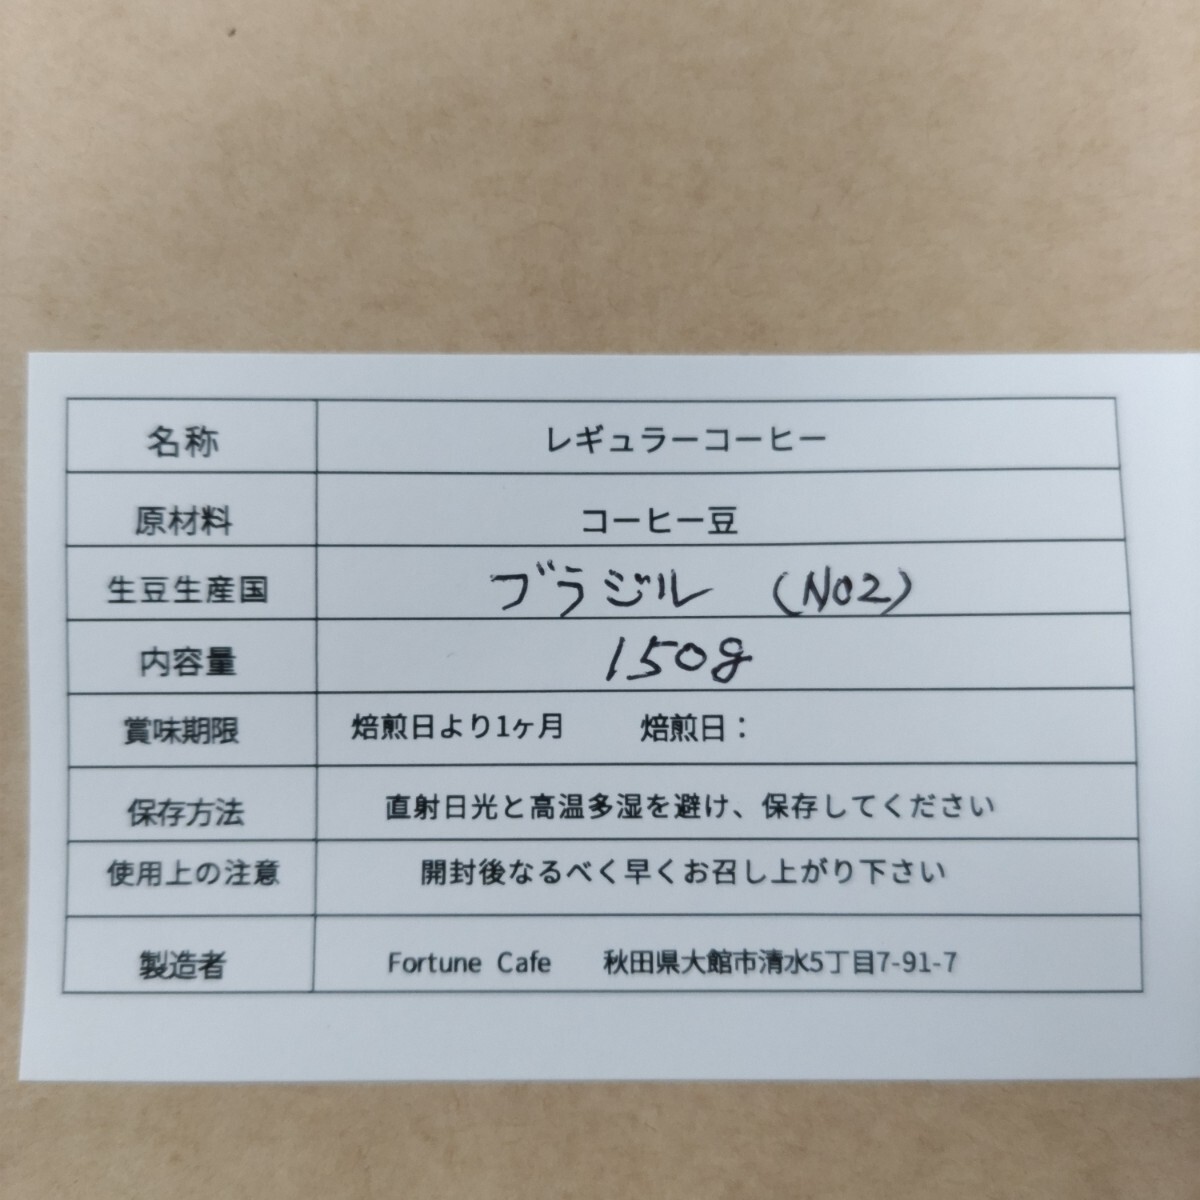 名称 レギュラーコーヒー
原材料 コーヒー豆
生豆生産国 ブラジル (NO2)
内容量 150g
賞味期限 焙煎日より1ヶ月 焙煎日：
保存方法 直射日光と高温多湿を避け、保存してください
使用上の注意 開封後なるべく早くお召し上がり下さい
製造者 Fortune Cafe 秋田県大館市清水5丁目7-91-7